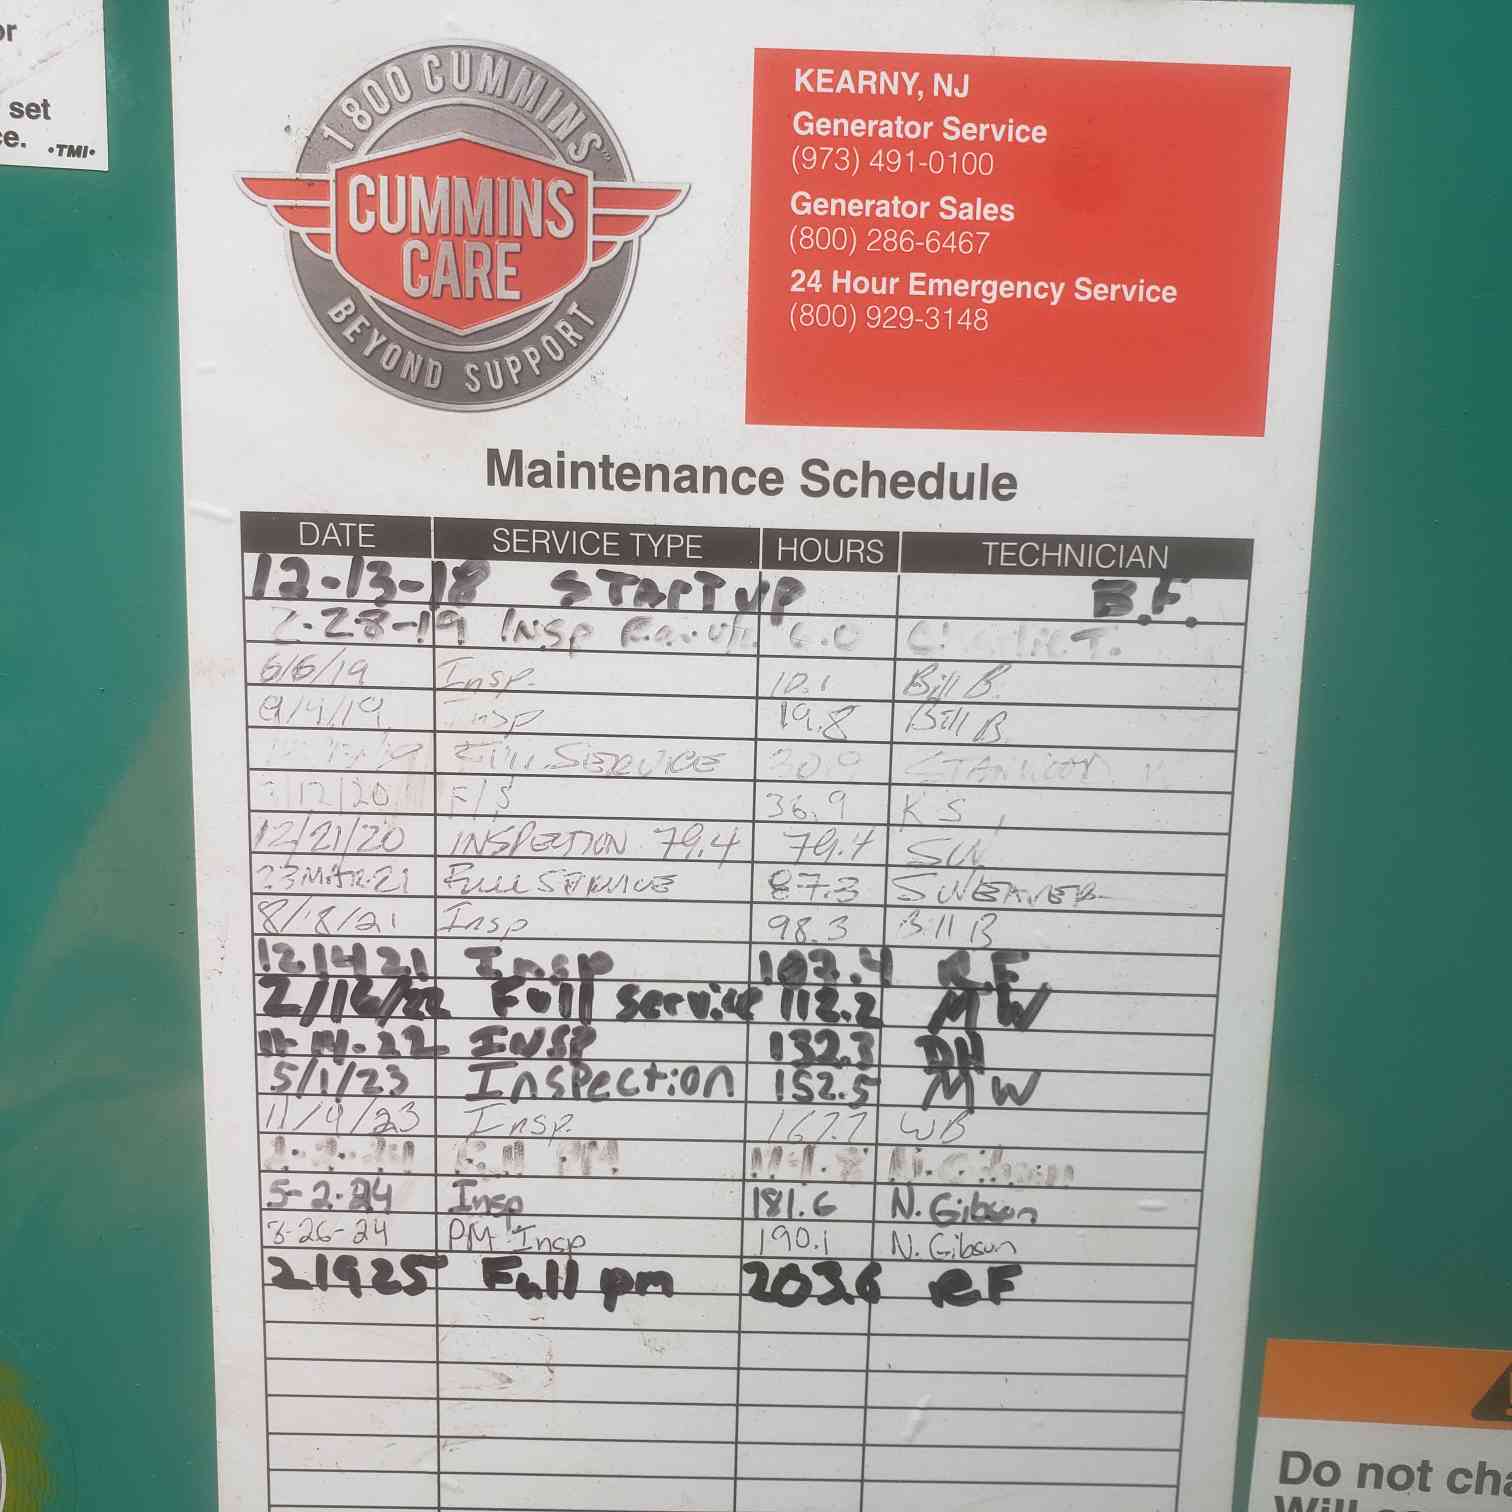 or
set
ce. •TMI•
1 800 CUMMINS
CUMMINS
CARE
BEYOND SUPPORT
KEARNY, NJ
Generator Service
(973) 491-0100
Generator Sales
(800) 286-6467
24 Hour Emergency Service
(800) 929-3148
Maintenance Schedule
DATE SERVICE TYPE HOURS TECHNICIAN
12-13-18 STARTUP B.F.
2-28-19 INSP 6.0
6/6/19 Insp. 10.1 Bill B.
9/4/19 Insp 19.8 Bill B
Full SERVICE 30.9
3/12/20 F/S 36.9 KS
12/21/20 INSPECTION 79.4 79.4 SW
23MAR21 Full SERVICE 87.3 SWEAVER
8/18/21 Insp 98.3 Bill B
121421 Insp 107.4 R.F
2/16/22 Full service 112.2 MW
11-14-22 INSP 132.3 DH
5/1/23 Inspection 152.5 MW
11/9/23 Insp. 167.7 WB
Full PM N. Gibson
5-2-24 Insp 181.6 N. Gibson
26-24 PM Insp 190.1 N. Gibson
21925 Full pm 203.6 RF
Do not cha
Will